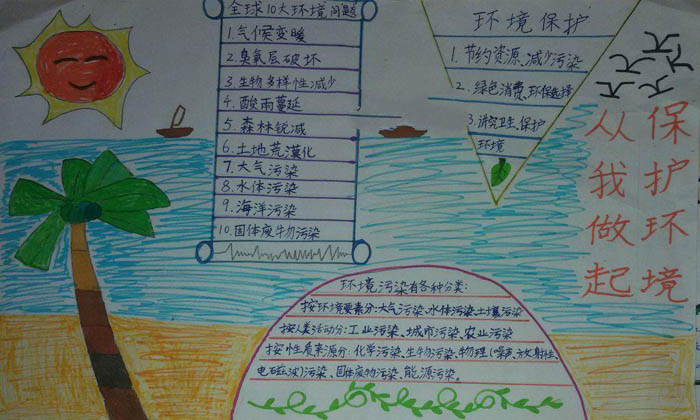 全球10大环境问题
1.气候变暖
2.臭氧层破坏
3.生物多样性减少
4.酸雨蔓延
5.森林锐减
6.土地荒漠化
7.大气污染
8.水体污染
9.海洋污染
10.固体废物污染
环境保护
1.节约资源、减少污染
2.绿色消费、环保选择
3.讲究卫生、保护
环境
保护环境
从我做起
环境污染有各种分类:
按环境要素分:大气污染、水体污染、土壤污染
按人类活动分:工业污染、城市污染、农业污染
按性质来源分:化学污染、生物污染、物理(噪声、放射性、
电磁波)污染、固体废物污染、能源污染。